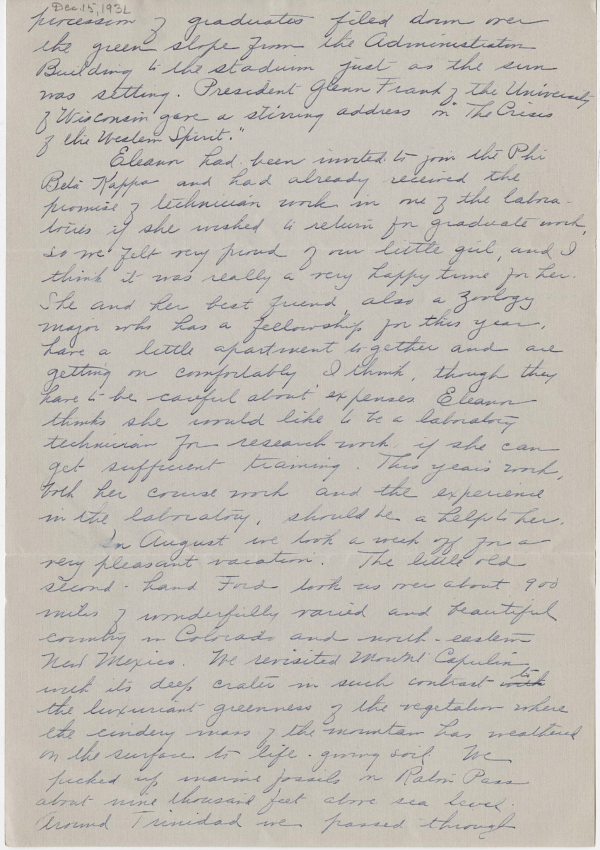 Dec. 15, 1932
procession of graduates filed down over
the green slope from the Administration
Building to the stadium just as the sun
was setting. President Glenn Frank of the University
of Wisconsin gave a stirring address on "The Crisis
of the Western Spirit."
Eleanor had been invited to join the Phi
Beta Kappa and had already received the
promise of technician work in one of the labora-
tories if she wished to return for graduate work,
so we felt very proud of our little girl, and I
think it was really a very happy time for her.
She and her best friend, also a Zoology
major who has a fellowship for this year,
have a little apartment together and are
getting on comfortably I think, though they
have to be careful about expenses. Eleanor
thinks she would like to be a laboratory
technician for research work if she can
get sufficient training. This year's work,
both her course work and the experience
in the laboratory, should be a help to her.
In August we took a week off for a
very pleasant vacation. The little old
second-hand Ford took us over about 900
miles of wonderfully varied and beautiful
country in Colorado and north-eastern
New Mexico. We revisited Mount Capulin
with its deep crater in such contrast with to
the luxuriant greenness of the vegetation where
the cindery mass of the mountain has weathered
on the surface to life-giving soil. We
picked up marine fossils on Raton Pass
about nine thousand feet above sea level.
Around Trinidad we passed through